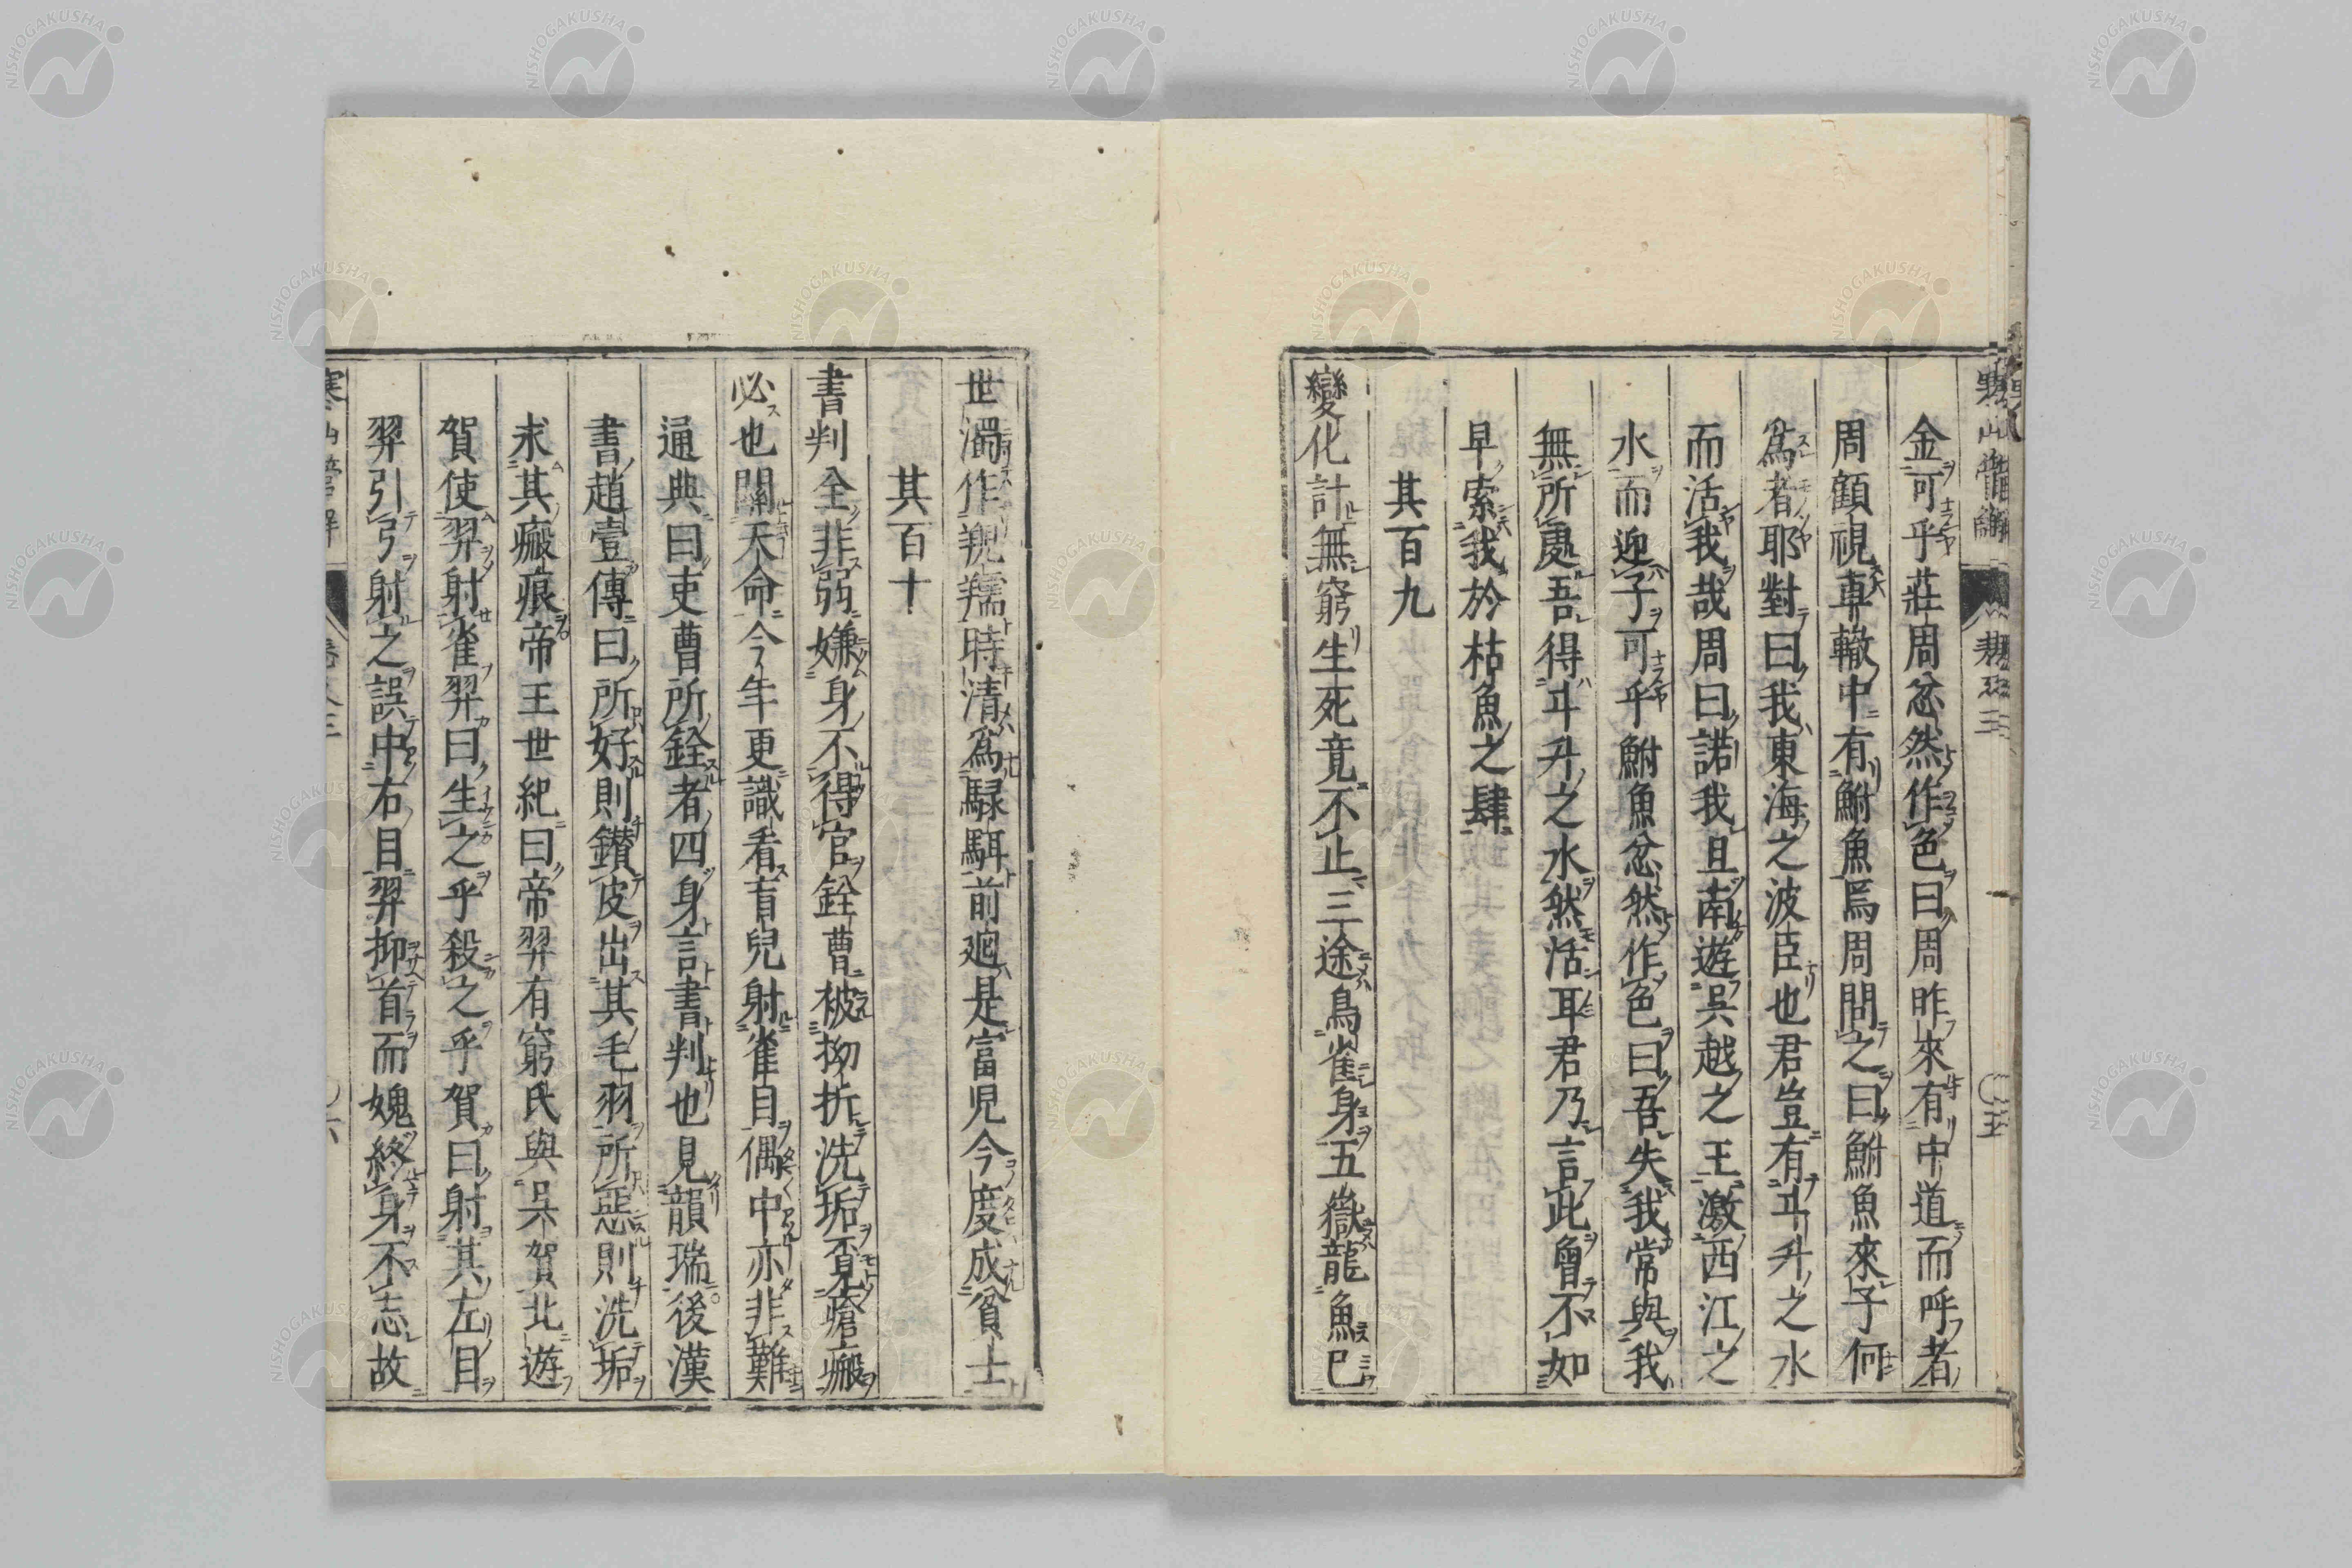 金可乎莊周忿然作色曰周昨來有中道而呼者
周顧視車轍中有鮒魚焉周問之曰鮒魚來子何
爲者耶對曰我東海之波臣也君豈有斗升之水
而活我哉周曰諾我且南遊吳越之王激西江之
水而迎子可乎鮒魚忿然作色曰吾失我常與我
無所處吾得斗升之水然活耳君乃言此曾不如
早索我於枯魚之肆
其百九
變化計無窮生死竟不止三途鳥雀身五嶽龍魚已
世濁作㲝羺時清爲騄駬前廻是富児今度成貧士
其百十
書判全非弱嫌身不得官銓曹被拗折洗垢覓瘡瘢
必也關天命今年更識看盲兒射雀目偶中亦非難
通典曰吏曹所銓者四身言書判也見韻瑞後漢
書趙壹傳曰所好則鑚皮出其毛羽所惡則洗垢
求其瘢痕帝王世紀曰帝羿有窮氏與吳賀北遊
賀使羿射雀羿曰生之乎殺之乎賀曰射其左目
羿引弓射之誤中右目羿抑首而媿終身不忘故
NISHOGAKUSHA